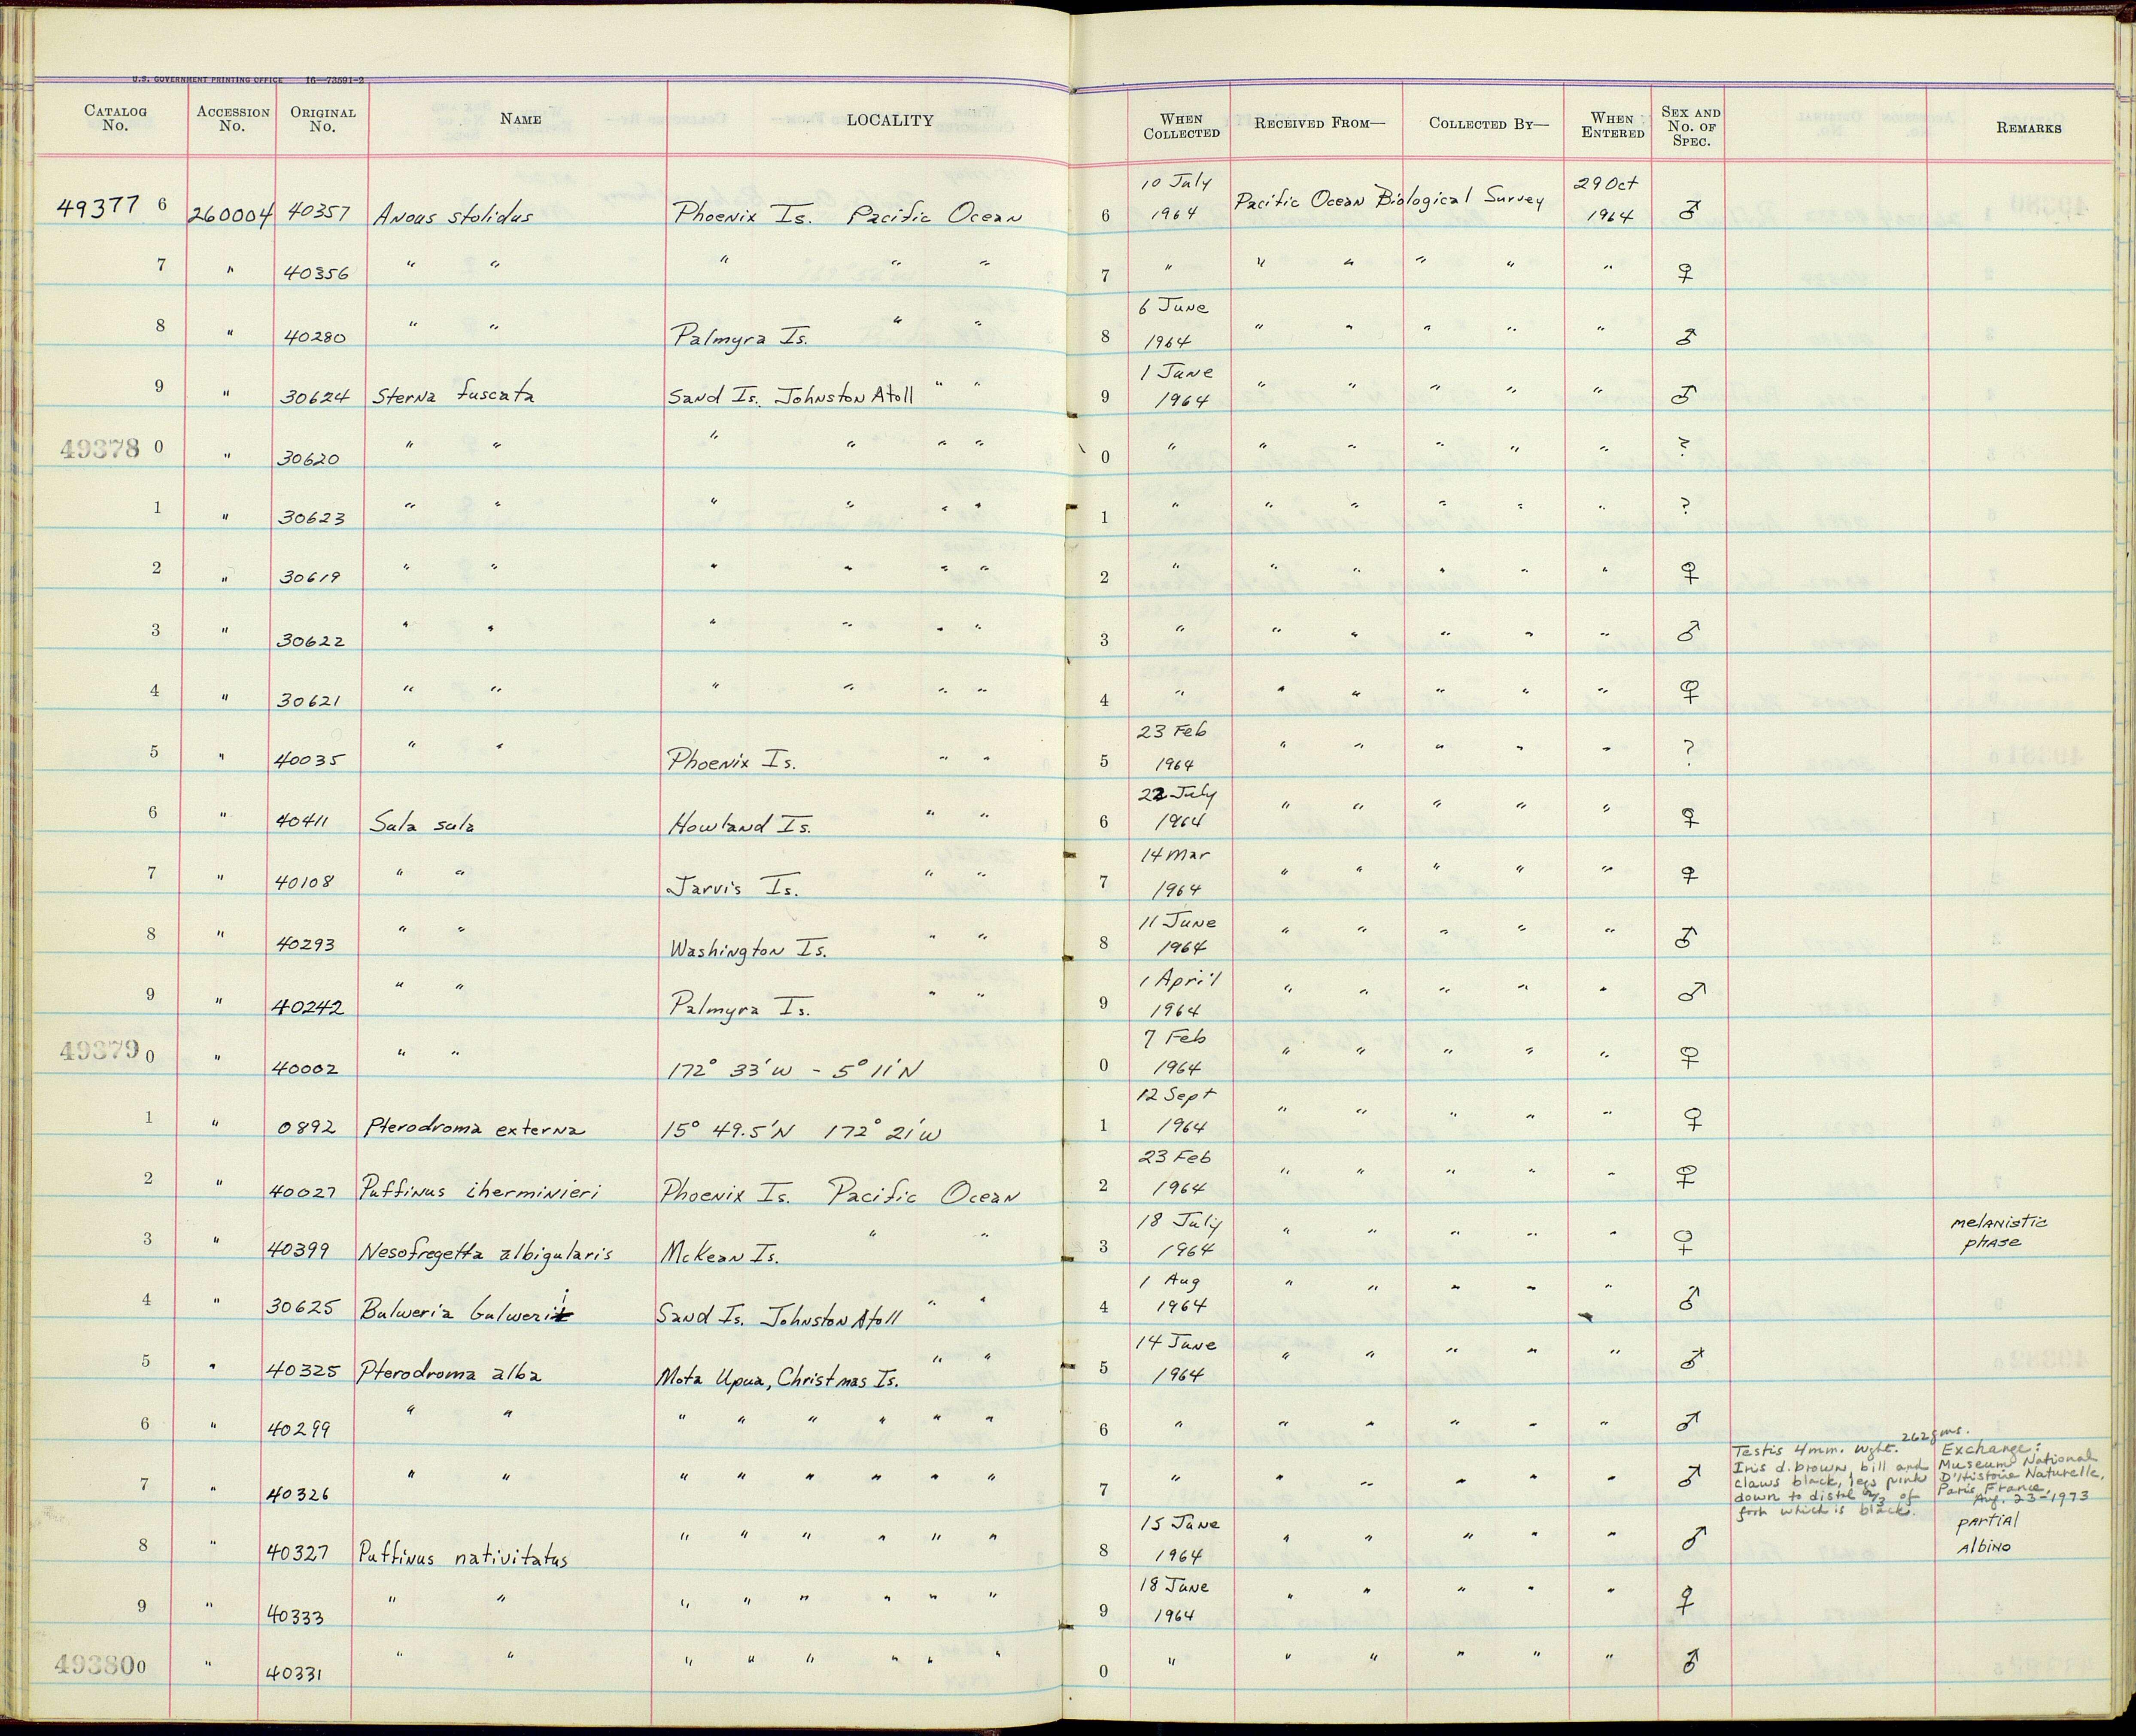 U.S. GOVERNMENT PRINTING OFFICE 16—73591-2
CATALOG No. ACCESSION No. ORIGINAL No. NAME LOCALITY WHEN COLLECTED RECEIVED FROM— COLLECTED BY— WHEN ENTERED SEX AND No. OF SPEC. REMARKS
49377 6 260004 40357 Anous stolidus Phoenix Is. Pacific Ocean 6 10 July 1964 Pacific Ocean Biological Survey 29 Oct 1964 ♂
7 " 40356 " " " " " 7 " " " " " " ♀
8 " 40280 " " Palmyra Is. " " 8 6 June 1964 " " " " " ♂
9 " 30624 Sterna fuscata Sand Is. Johnston Atoll " " 9 1 June 1964 " " " " " ♂
49378 0 " 30620 " " " " " " 0 " " " " " " ?
1 " 30623 " " " " " " 1 " " " " " " ?
2 " 30619 " " " " " " 2 " " " " " " ♀
3 " 30622 " " " " " " 3 " " " " " " ♂
4 " 30621 " " " " " " 4 " " " " " " ♀
5 " 40035 " " Phoenix Is. " " 5 23 Feb 1964 " " " " " ?
6 " 40411 Sula sula Howland Is. " " 6 22 July 1964 " " " " " ♀
7 " 40108 " " Jarvis Is. " " 7 14 Mar 1964 " " " " " ♀
8 " 40293 " " Washington Is. " " 8 11 June 1964 " " " " " ♂
9 " 40242 " " Palmyra Is. " " 9 1 April 1964 " " " " " ♂
49379 0 " 40002 " " 172° 33'W - 5° 11'N 0 7 Feb 1964 " " " " " ♀
1 " 0892 Pterodroma externa 15° 49.5'N 172° 21'W 1 12 Sept 1964 " " " " " ♀
2 " 40027 Puffinus iherminieri Phoenix Is. Pacific Ocean 2 23 Feb 1964 " " " " " ♀
3 " 40399 Nesofregetta albigularis McKean Is. " " 3 18 July 1964 " " " " " ♀ melanistic phase
4 " 30625 Bulweria bulwerii Sand Is. Johnston Atoll " " 4 1 Aug 1964 " " " " " ♂
5 " 40325 Pterodroma alba Mota Upua, Christmas Is. " " 5 14 June 1964 " " " " " ♂
6 " 40299 " " " " " " " " 6 " " " " " " ♂
7 " 40326 " " " " " " " " 7 " " " " " " ♂ Testis 4mm. Wght. 262gms. Iris d. brown, bill and claws black, legs pink down to distal 2/3 of foot which is black. Exchange: Museum National D'Histoire Naturelle, Paris France, Aug. 23-1973
8 " 40327 Puffinus nativitatus " " " " " " 8 15 June 1964 " " " " " ♂ partial Albino
9 " 40333 " " " " " " " " 9 18 June 1964 " " " " " ♀
49380 0 " 40331 " " " " " " " " 0 " " " " " " ♂